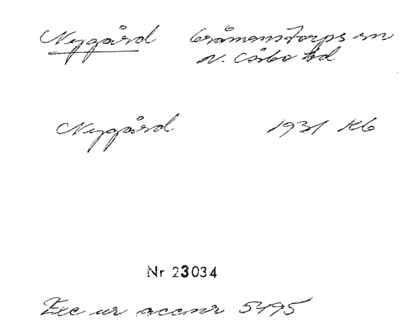 Nygård Gråmanstorps sn
N. Åsbo hd
Nygård 1931 Kb
Nr 23034
Exc ur accnr 5495